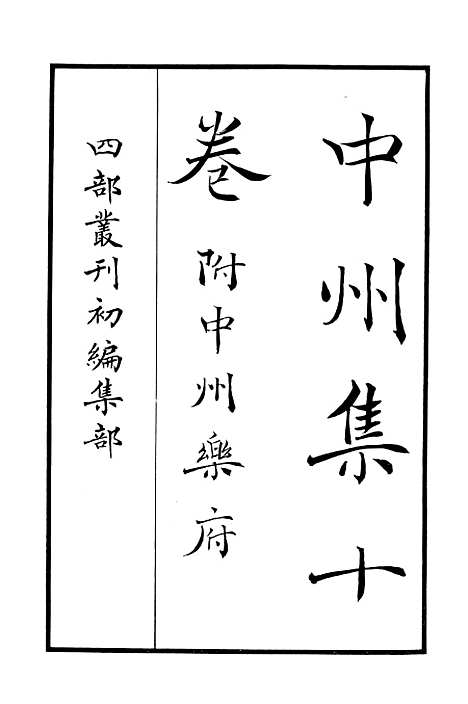 中州集十
卷 附中州樂府
四部叢刊初編集部